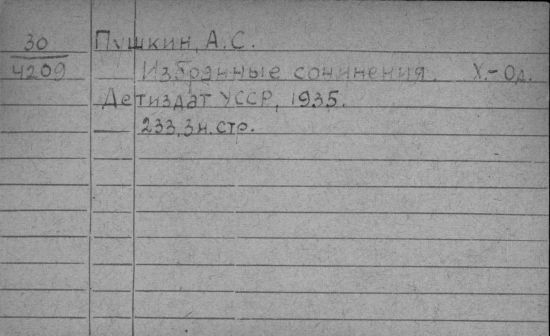 30 Пушкин, А.С.
4209 Избранные сочинения. Х.-Од.
Детиздат УССР, 1935.
233, 3 н. стр.